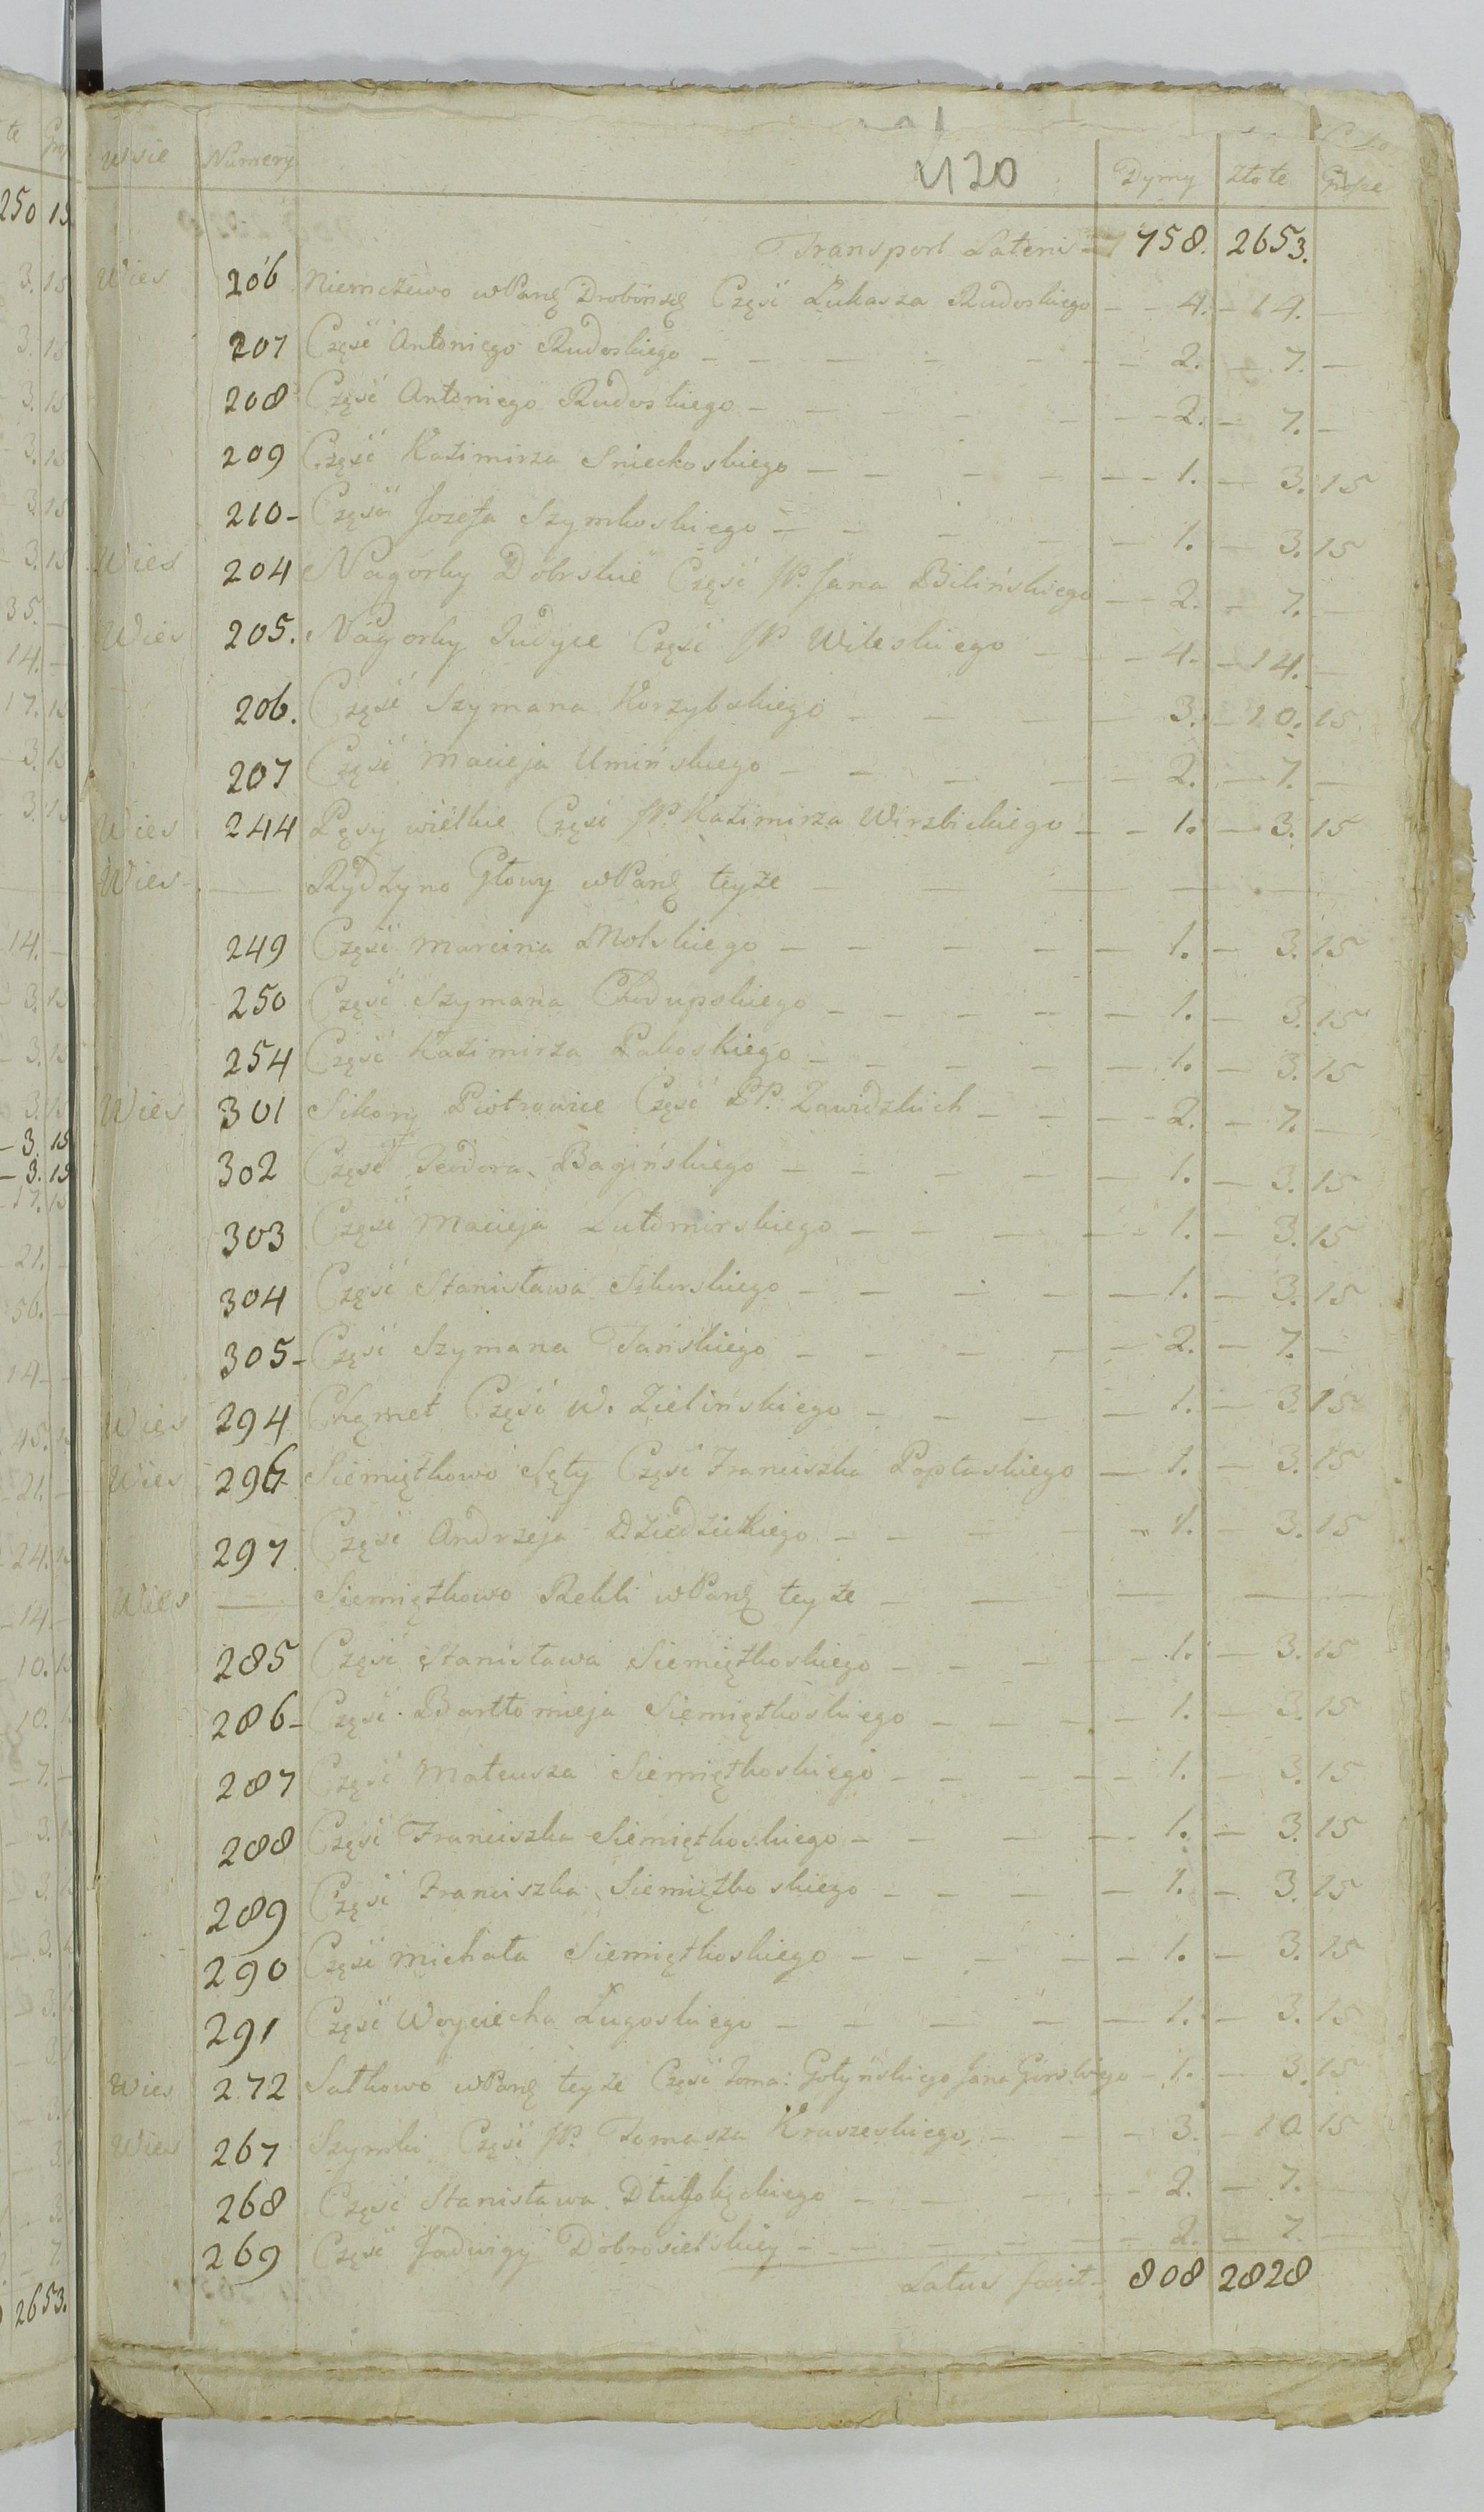 420
Wsie Numery Dymy Złote Grosze
Transport Lateris 758. 2653.
Wies 206 Niemczewo wParẹ Drobińskẹ Częsć Łukasza Rudoskiego – – 4. – 14. –
207 Częsć Antoniego Rudoskiego – – 2. – 7. –
208 Częsć Antoniego Rudoskiego – – 2. – 7. –
209 Częsć Kazimirza Snieckoskiego – – 1. – 3. 15
210 – Częsć Jozefa Szymkoskiego – – 1. – 3. 15
Wies 204 Nagorky Dobrskie Częsć JP. Jana Bilińskiego – – 2. – 7. –
Wies 205. Nagorky Judyce Częsć JP. Wileskiego – – 4. – 14. –
206. Częsć Szymana Korzybskiego – – 3. – 10. 15
207 Częsć Macieja Umińskiego – – 2. – 7. –
Wies 244 Pęsy wielkie Częsć JP Kazimirza Wirzbickiego – – 1. – 3. 15
Wies – Rydzyno Głowy wParẹ teyże – – – –
249 Częsć Marcina Molskiego – – 1. – 3. 15
250 Częsć Szymana Chodupskiego – – 1. – 3. 15
254 Częsć Kazimirza Pakoskiego – – 1. – 3. 15
Wies 301 Sikory Piotrowice Częsć PP. Zawidzkich – – 2. – 7. –
302 Częsć Teodora Bagińskiego – – 1. – 3. 15
303 Częsć Macieja Lutomirskiego – – 1. – 3. 15
304 Częsć Stanisława Sikorskiego – – 1. – 3. 15
305 – Częsć Szymana Tańskiego – – 2. – 7. –
Wies 294 Chęmet Częsć W. Zielińskiego – – 1. – 3. 15
Wies 296 Siemiętkowo Sęty Częsć Franciszka Popłaskiego – 1. – 3. 15
297 Częsć Andrzeja Dziedzickiego – – 1. 3. 15
Wies – Siemiętkowo Rekli wParẹ teyże – – – –
285 Częsć Stanisława Siemiętkoskiego – – 1. – 3. 15
286 – Częsć Bartłomieja Siemiętkoskiego – – 1. – 3. 15
287 Częsć Mateusza Siemiętkoskiego – – 1. – 3. 15
288 Częsć Franciszka Siemiętkoskiego – – 1. – 3. 15
289 Częsć Franciszka Siemiętkoskiego – – 1. – 3. 15
290 Częsć Michała Siemiętkoskiego – – 1. – 3. 15
291 Częsć Woyciecha Ługoskiego – – 1. – 3. 15
Wies 272 Sułkowo wParẹ teyże Częsć Toma: Gołyńskiego Jana Girskiego – 1. – 3. 15
Wies 267 Szymki Częsć JP. Tomasza Kraszeskiego, – – 3. – 10 15
268 Częsć Stanisława DłuHołęckiego – – 2. – 7. –
269 Częsć Jadwigy Dobrosielskiey – – 2. – 7. –
Latus facit – 808 2828